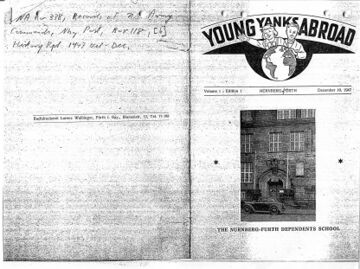 NA RG 338, Records of U.S. Army
Commands, Nbg. Post, Box 118, [6]
History Rpt 1947 Oct - Dec.
Buchdruckerei Lorenz Wellinger, Fürth i. Bay.,
YOUNG YANKS ABROAD
Volume 1 - Edition 1
NURNBERG-FÜRTH
December 10, 1947
THE NURNBERG-FURTH DEPENDENTS SCHOOL